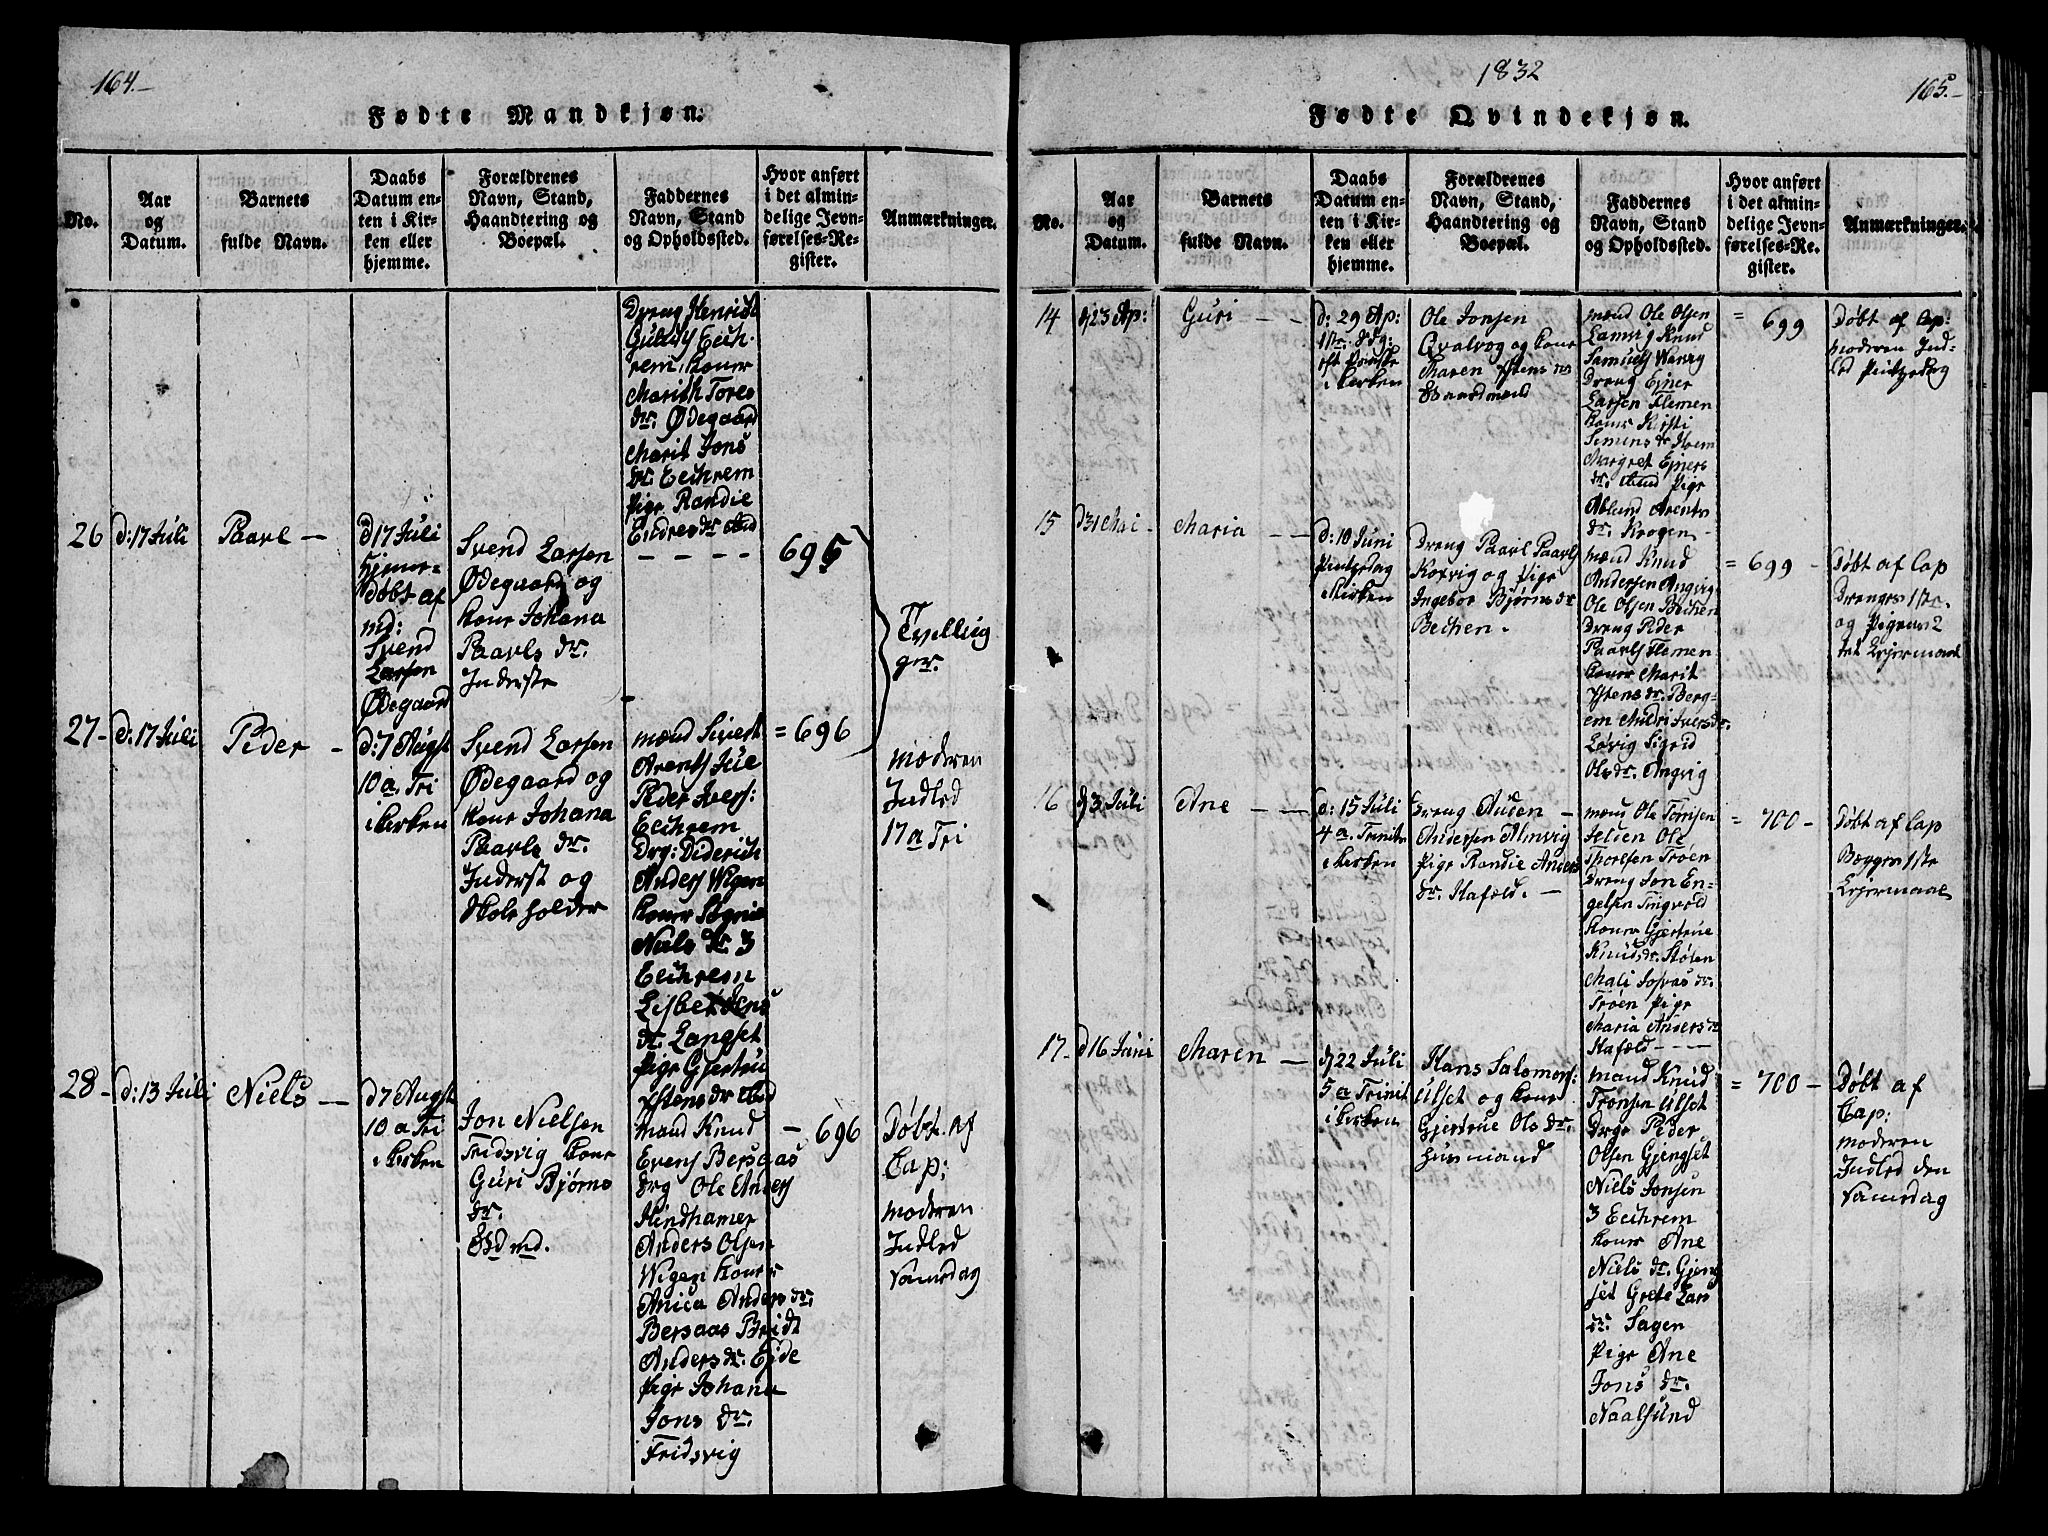 164.-
Fødte Mandkjøn.
No.
Aar
og
Datum.
Barnets
fulde Navn.
Daabs
Datum en-
ten i Kir-
ken eller
hjemme.
Forældrenes
Navn, Stand,
Haandtering og
Boepæl.
Faddernes
Navn, Stand
og Opholdssted.
Hvor anført
i det almin-
delige Jevn-
førelses-Re-
gister.
Anmærkninger.
Dreng Henrich
Eich-
rem, koner
Marith Tores
dr. Ødegaard
Marit Jons
dr. Eichrem
Pige Randie
Endresdr
26
d: 17 Juli
Paavl —
d 17 Juli
hjeme-
døbt af
md:
Svend
Larsen
Ødegaard
Svend Larsen
Ødegaard og
kone Johana
Paavls dr.
Inderste
- - - -
695
Tvelling
ger.
27-
d: 17 Juli
Peder -
d: 7 Augst
10 a. Tri
i kirken
Svend Larsen
Ødegaard og
kone Johana
Paavls dr.
Inderst og
Skoleholder
mænd Sivert
Arents
Peder Ivers:
Eichrem
Drg: Diderich
Anders Wigen
koner
Niels dr. 3
Eichrem
Lisbet Jens
dr. Langset
Pige Gjertru
Istens dr
= 696
moderen
Indled
17 a Tri
28 -
d: 13 Juli
Niels —
d 7 Augst
10 a Tri
i kirken
Jon Nielsen
Fridsvig kone
Guri Bjørns
dr.
Gdmd.
Mænd Knud
Evens Bersaas
Drg Ole Anders
Hindhamer
Anders Olsen
Wigen koner
Anica Anders dr.
Bersaas Bridt
Anders dr. Ejde
Pige Johana
Jons dr.
Fridsvig
- 696
Døbt af
Cap:
moderen
Indled
samedag
1832
165.-
Fødte Qvindekjøn.
No.
Aar
og
Datum.
Barnets
fulde Navn.
Daabs
Datum en-
ten i Kir-
ken eller
hjemme.
Forældrenes
Navn, Stand,
Haandtering og
Boepæl.
Faddernes
Navn, Stand
og Opholdssted.
Hvor anført
i det almin-
delige Jevn-
førelses-Re-
gister.
Anmærkninger.
14
d 23 Ap:
Guri - -
d: 29 Ap:
1st.
eft Paaske
i kirken
Ole Jonsen
Qvalvog og kone
Maren Istens dr
Gaardmand
mænd Ole Olsen
Lamvig Knud
Samuels
Dreng Ejner
Larsen Flemen
koner Kirsti
Simens dr Hoem
Margret Ejners
dr. Pige
Ablund Arents
dr. Krogen -
= 699
Døbt af Cap:
moderen Ind-
led Pintzedag
15
d 31 Mai -
Maria - -
d: 10 Juni
Pintzedag
i kirken
Dreng Paavl Paavls
Korvig og Pige
Ingebor Bjørns dr
Bechen -
mænd Knud
Andersen Angvig
Ole Olsen Bechen
Dreng Peder
Paavls Flemen
koner Marit
Istens dr. Berg-
em Andri Ivers dr.
Løvig Sigrid
Ols dr. Angvig
= 699 -
Døbt af Cap
Drenges 1ste.
og Pigens 2
det Lejermaal
16
d 3 Juli
Ane - -
d: 15 Juli
4 a. Trinit
i kirken
Dreng Auden -
Andersen Almvig
Pige Randie Anders
dr. Hafeld. -
mænd Ole Tomsen
Ole
Thoresen Trøen
Dreng Jon En-
gelsen Tingvold
koner Gjertrue
Knuds dr. Stølen
Mali dr.
Trøen Pige
Maria Anders dr
Hafeld - - -
= 700 -
Døbt af Cap
Begges 1ste
Lejermaal
17-
d 16 Juni
Maren -
d 22 Juli
5 a Trinit
i kirken
Hans Salomons:
Ulset og kone
Gjertrue Ols dr.
Husmand
mænd Knud
Tronsen Ulset
Drge Peder
Olsen Gjengset
Niels Jonsen
3 Eichrem
koner Ane
Niels dr. Gjeng
set Grete Lars
dr. Sagen
Pige Ane
Jons dr.
Naalsund
= 700 -
Døbt af
Cap:
moderen
Indled den
samedag